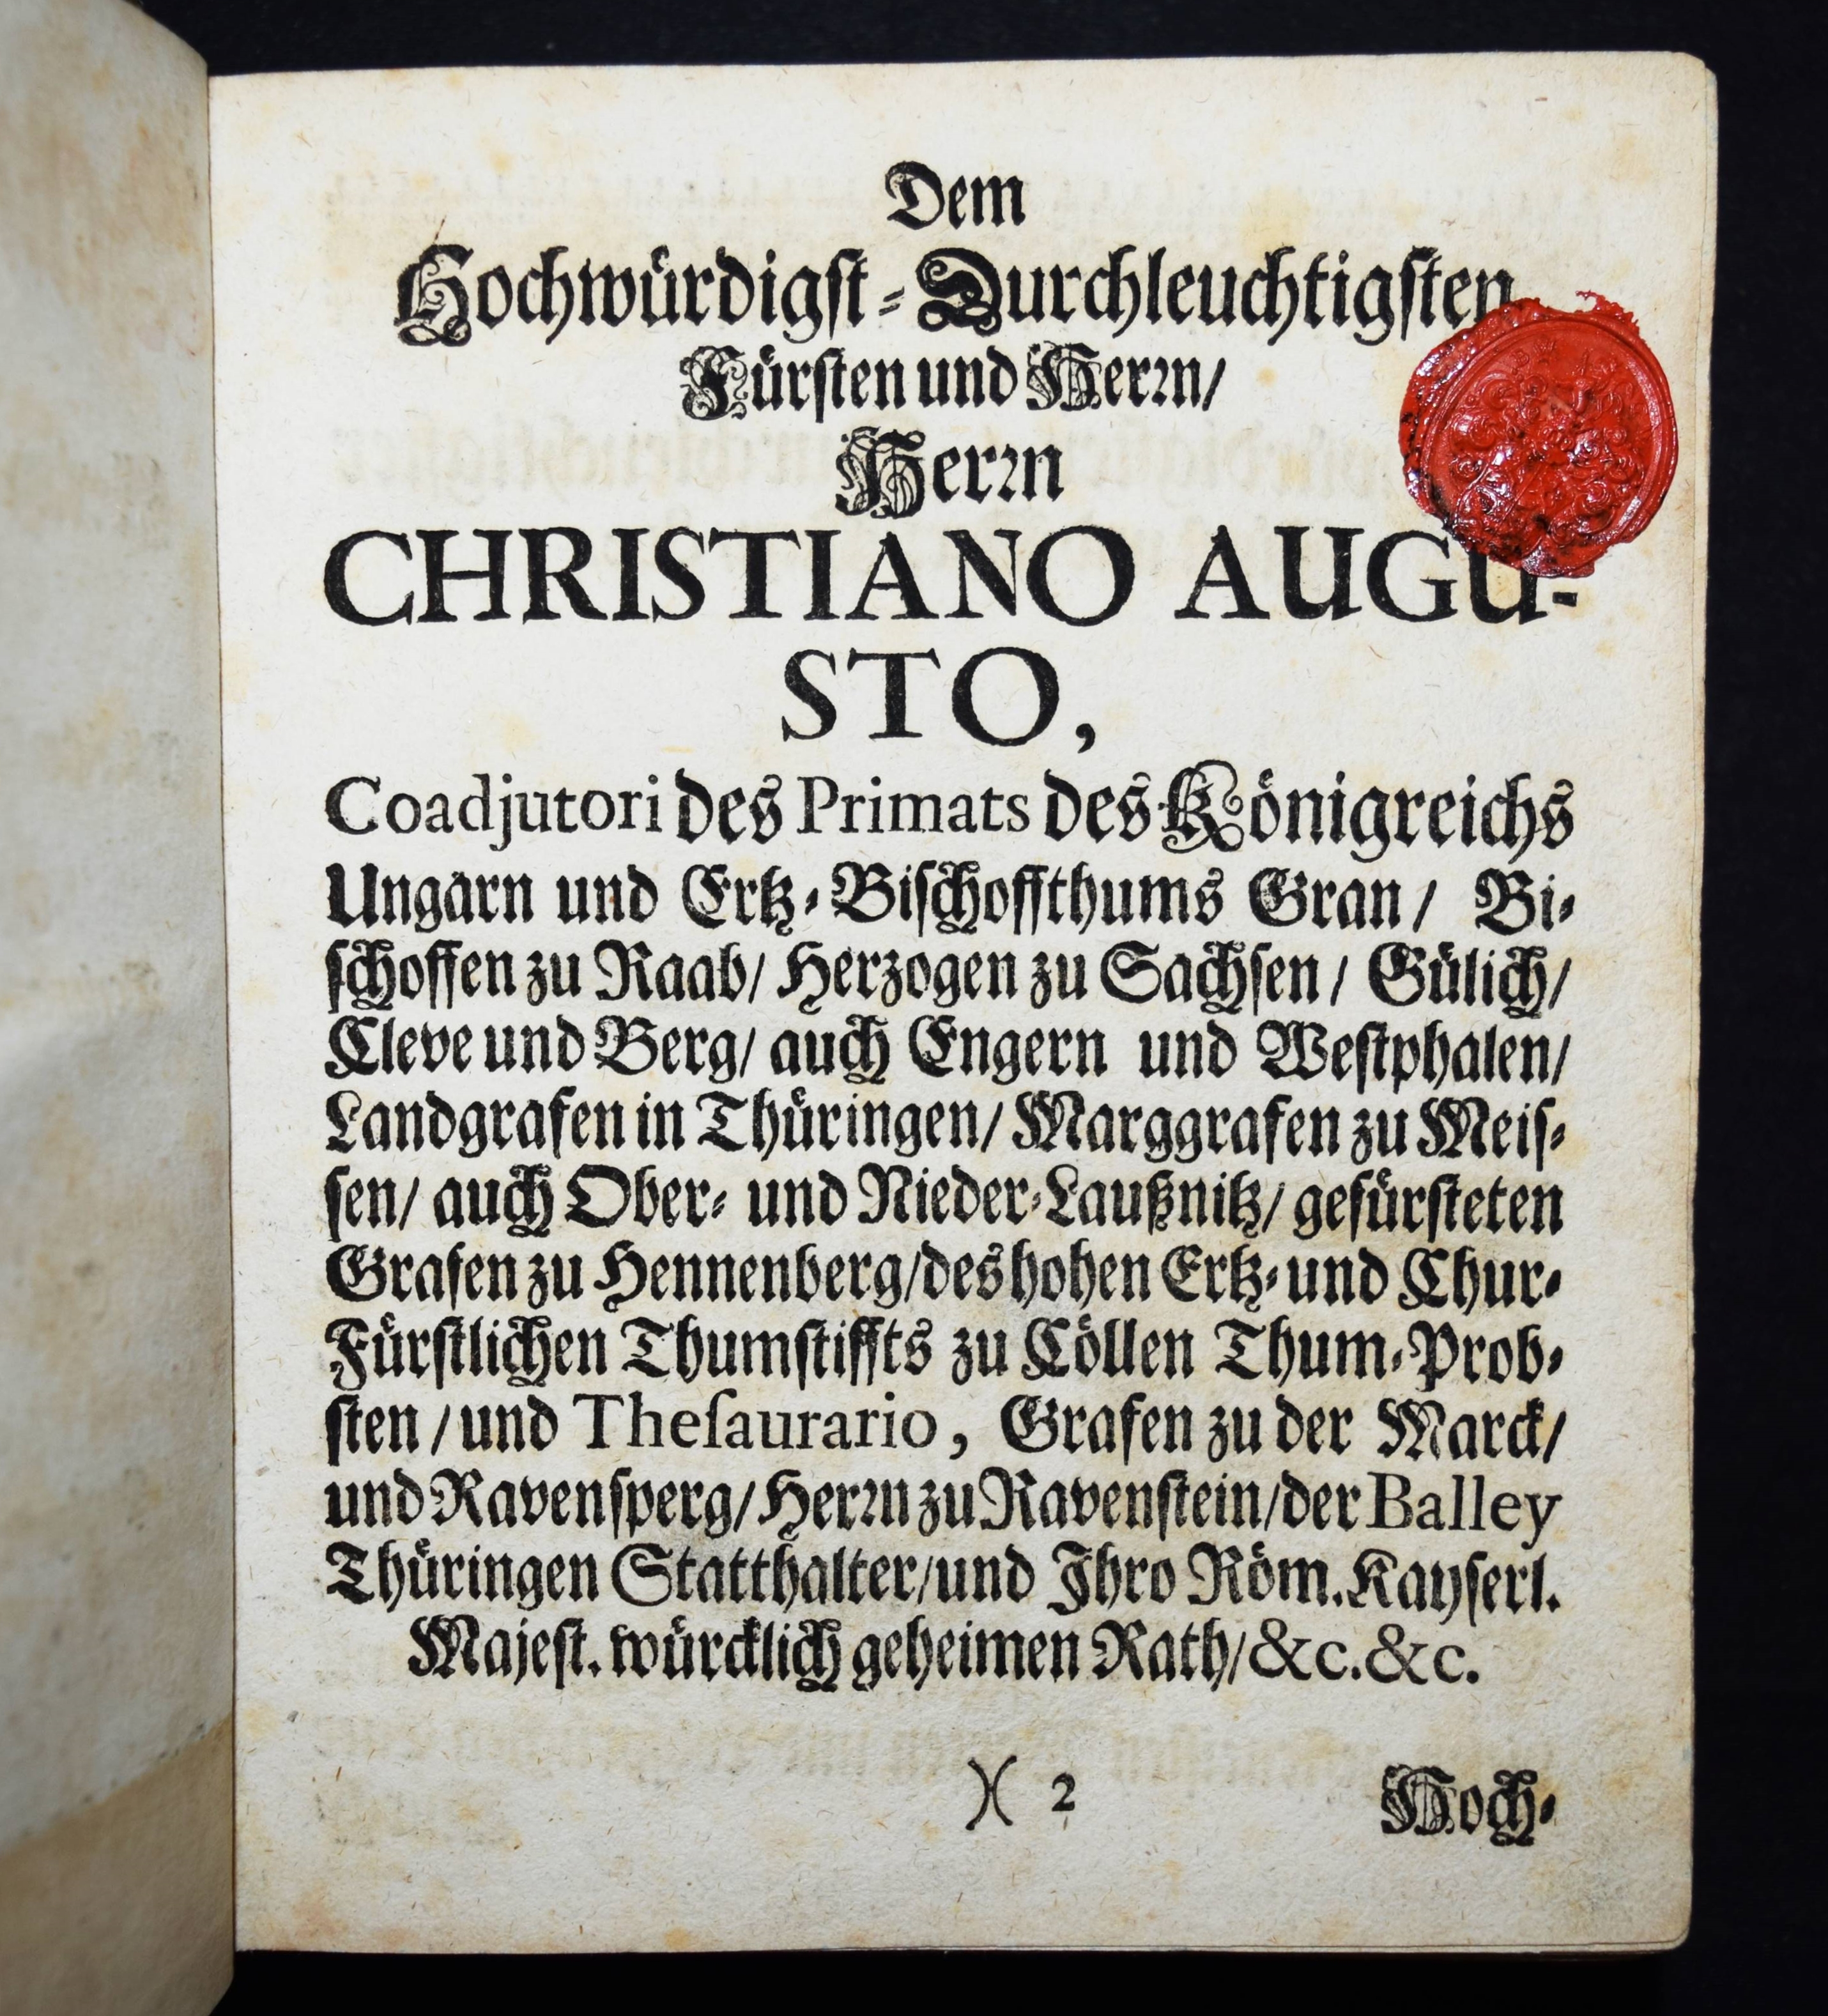 Dem
Hochwürdigst-Durchleuchtigsten
Fürsten und Herrn/
Herrn
CHRISTIANO AUGU-
STO,
Coadjutori des Primats des Königreichs
Ungarn und Ertz-Bischoffthums Gran/ Bi-
schoffen zu Raab/ Herzogen zu Sachsen/ Gülich/
Cleve und Berg/ auch Engern und Westphalen/
Landgrafen in Thüringen/ Marggrafen zu Meis-
sen/ auch Ober- und Nieder-Laußnitz/ gefürsteten
Grafen zu Hennenberg/ des hohen Ertz- und Chur-
Fürstlichen Thumstiffts zu Cöllen Thum-Prob-
sten/ und Theſaurario, Grafen zu der Marck/
und Ravensperg/ Herrn zu Ravenstein/ der Balley
Thüringen Statthalter/ und Ihro Röm. Kayserl.
Majest. würcklich geheimen Rath/ &c. &c.
)( 2
Hoch-